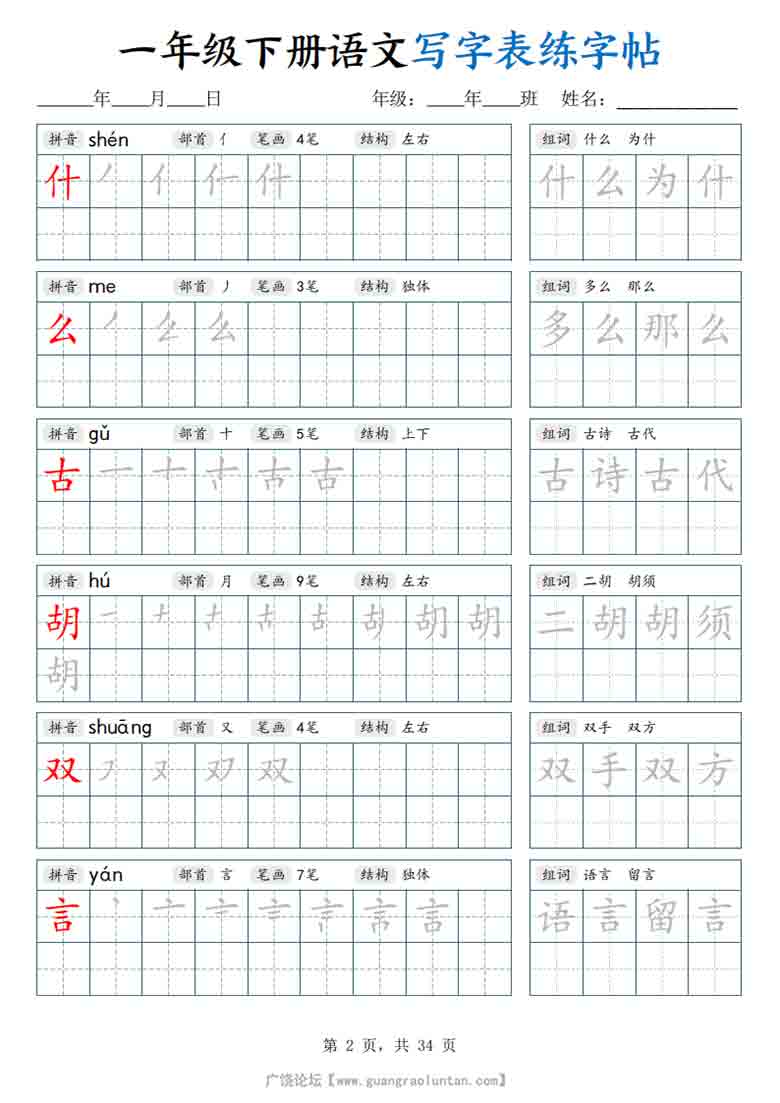 一年级下册语文写字表练字帖
______年____月____日 年级：____年____班 姓名：____________
拼音 shén 部首 亻 笔画 4笔 结构 左右 组词 什么 为什
什 丿 亻 什 什 什么为什
拼音 me 部首 丿 笔画 3笔 结构 独体 组词 多么 那么
么 丿 么 么 多么那么
拼音 gǔ 部首 十 笔画 5笔 结构 上下 组词 古诗 古代
古 一 十 古 古 古诗古代
拼音 hú 部首 月 笔画 9笔 结构 左右 组词 二胡 胡须
胡 一 十 古 胡 胡 二胡胡须
胡
拼音 shuāng 部首 又 笔画 4笔 结构 左右 组词 双手 双方
双 フ 又 双 双手双方
拼音 yán 部首 言 笔画 7笔 结构 独体 组词 语言 留言
言 丶 亠 言 语言留言
第 2 页，共 34 页
广饶论坛【www.guangraoluntan.com】